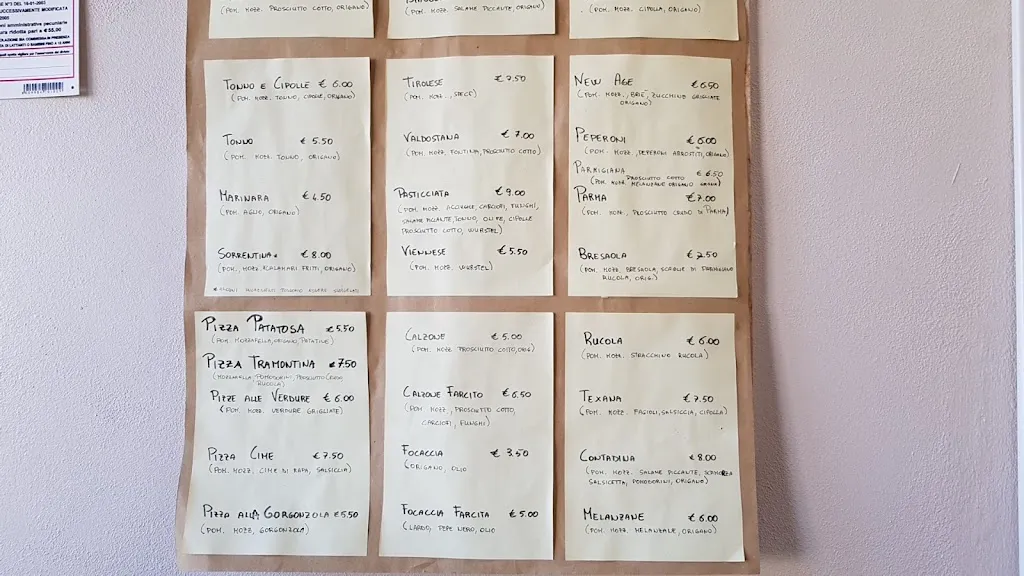 SE N°3 DEL 16-01-2003
SUCCESSIVAMENTE MODIFICATA
2005
ni amministrative pecuniarie
ura ridotta pari a € 55,00
(POM. MOZZ. PROSCIUTTO COTTO, ORIGANO)
TONNO E CIPOLLE € 6.00
(POM. MOZZ. TONNO, CIPOLLE, ORIGANO)
TONNO € 5.50
(POM. MOZZ. TONNO, ORIGANO)
MARINARA € 4.50
(POM. AGLIO, ORIGANO)
SORRENTINA* € 8.00
(POM., MOZZ. CALAMARI FRITTI, ORIGANO)
PIZZA PATATOSA € 5.50
(POM. MOZZARELLA, ORIGANO, PATATINE)
PIZZA TRAMONTINA € 7.50
(MOZZARELLA, POMODORINI, PROSCIUTTO CRUDO
RUCOLA)
PIZZE ALLE VERDURE € 6.00
(POM. MOZZ. VERDURE GRIGLIATE)
PIZZA CIME € 7.50
(POM. MOZZ. CIME DI RAPA, SALSICCIA)
PIZZA ALLA GORGONZOLA € 5.50
(POM. MOZZ, GORGONZOLA)
(POM. MOZZ. SALAME PICCANTE, ORIGANO)
TIROLESE € 7.50
(POM. MOZZ., SPECK)
VALDOSTANA € 7.00
(POM. MOZZ. FONTINA, PROSCIUTTO COTTO)
PASTICCIATA € 9.00
(POM. MOZZ. ACCIUGHE, CARCIOFI, FUNGHI,
SALAME PICCANTE, TONNO, OLIVE, CIPOLLE
PROSCIUTTO COTTO, WURSTEL)
VIENNESE € 5.50
(POM. MOZZ. WURSTEL)
CALZONE € 5.00
(POM. MOZZ PROSCIUTTO COTTO, ORIG)
CALZONE FARCITO € 6.50
(POM MOZZ, PROSCIUTTO COTTO,
CARCIOFI, FUNGHI)
FOCACCIA € 3.50
(ORIGANO, OLIO
FOCACCIA FARCITA € 5.00
(LARDO, PEPE NERO, OLIO
(POM. MOZZ. CIPOLLA, ORIGANO)
NEW AGE € 6.50
(POM. MOZZ., BRIE, ZUCCHINE GRIGLIATE
ORIGANO)
PEPERONI € 6.00
(POM. MOZZ., PEPERONI ARROSTITI, ORIGANO)
PARMIGIANA € 6.50
(POM. MOZZ. PROSCIUTTO COTTO
MELANZANE ORIGANO GRANA)
PARMA € 7.00
(POM. MOZZ., PROSCIUTTO CRUDO DI PARMA)
BRESAOLA € 7.50
(POM. MOZZ. BRESAOLA, SCAGLIE DI PARMIGIANO
RUCOLA, ORIG.)
RUCOLA € 6.00
(POM. MOZZ. STRACCHINO RUCOLA)
TEXANA € 7.50
(POM. MOZZ. FAGIOLI, SALSICCIA, CIPOLLA)
CONTADINA € 8.00
(POM. MOZZ. SALAME PICCANTE, SCAMORZA
SALSICCETTA, POMODORINI, ORIGANO)
MELANZANE € 6.00
(POM. MOZZ. MELANZANE, ORIGANO)